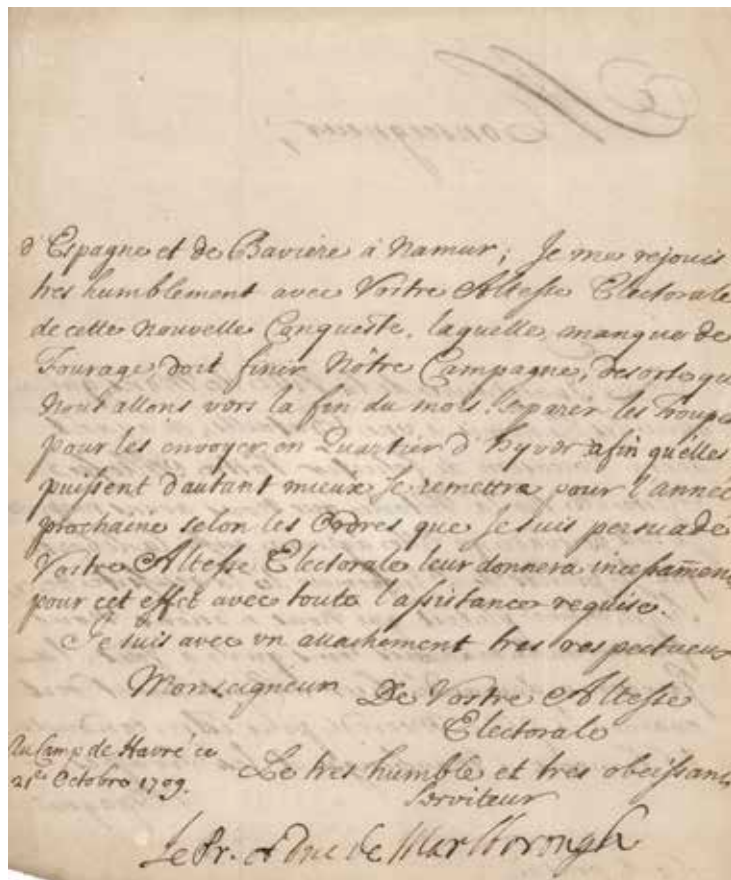 Monseigneur,
d'Espagne et de Baviere à Namur; Je me rejouis
tres humblement avec Vostre Altesse Electorale
de cette Nouvelle Conqueste, laquelle, manque de
Fourage doit finir Nôtre Campagne, desorte que
Nous allons vers la fin du mois separer les Troupes
pour les envoyer en Quartier d'hyver afin qu'elles
puissent d'autant mieux se remettre pour l'année
prochaine selon les Ordres que je suis persuadé
Vostre Altesse Electorale leur donnera incessam̄ent
pour cet effet avec toute l'assistance requise.
Je suis avec un attachement tres respectueux
Monseigneur De Vostre Altesse
Electorale
Au Camp de Havré ce
21e Octobre 1709.
Le tres humble et tres obeissant
Serviteur
Le Pr. et duc de Marlborough